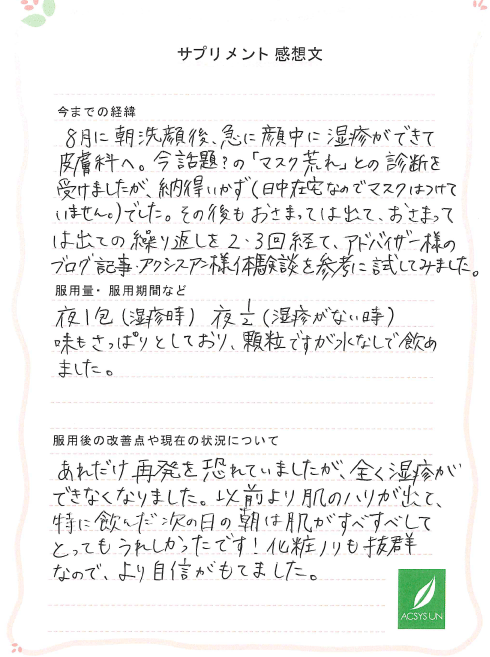 サプリメント 感想文
今までの経緯
8月に朝洗顔後、急に顔中に湿疹ができて
皮膚科へ。今話題?の「マスク荒れ」との診断を
受けましたが、納得いかず(日中在宅なのでマスクはつけて
いません。)でした。その後もおさまっては出て、おさまって
は出ての繰り返しを2・3回経て、アドバイザー様の
ブログ記事・アクシスアン様体験談を参考に試してみました。
服用量・服用期間など
夜1包(湿疹時) 夜1/2(湿疹がない時)
味もさっぱりとしており、顆粒ですが水なしで飲め
ました。
服用後の改善点や現在の状況について
あれだけ再発を恐れていましたが、全く湿疹が
できなくなりました。以前より肌のハリが出て、
特に飲んだ次の日の朝は肌がすべすべして
とってもうれしかったです!化粧ノリも抜群
なので、より自信がもてました。
ACSYS UN